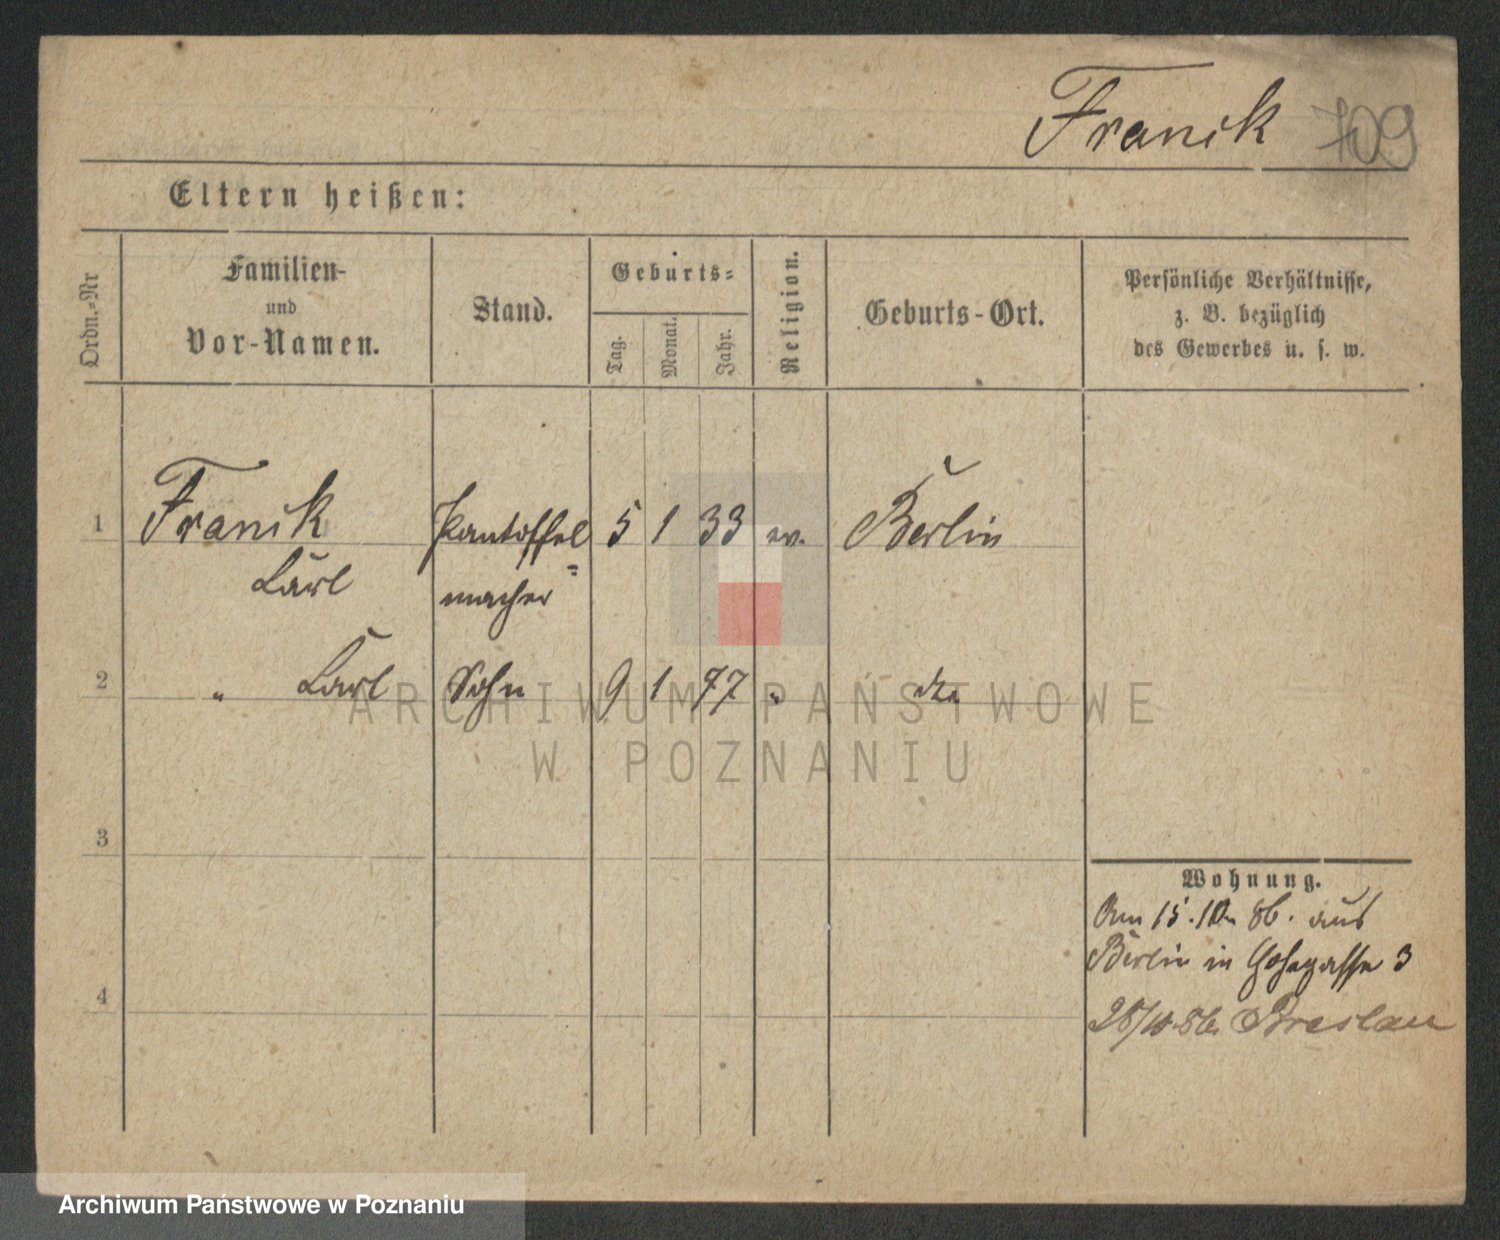 Franik 709
Eltern heißen:
Ordn.-Nr
Familien-
und
Vor-Namen.
Stand.
Geburts-
Tag.
Monat.
Jahr.
Religion.
Geburts-Ort.
Persönliche Verhältnisse,
z. B. bezüglich
des Gewerbes u. s. w.
1 Franik Pantoffel 5 1 33 ev. Berlin
Carl macher
2 " Carl Sohn 9 1 77 "
ARCHIWUM PAŃSTWOWE
W POZNANIU
3
Wohnung.
Am 15. 10. 86. aus
Berlin in 3
4
28/10 86. Breslau
Archiwum Państwowe w Poznaniu